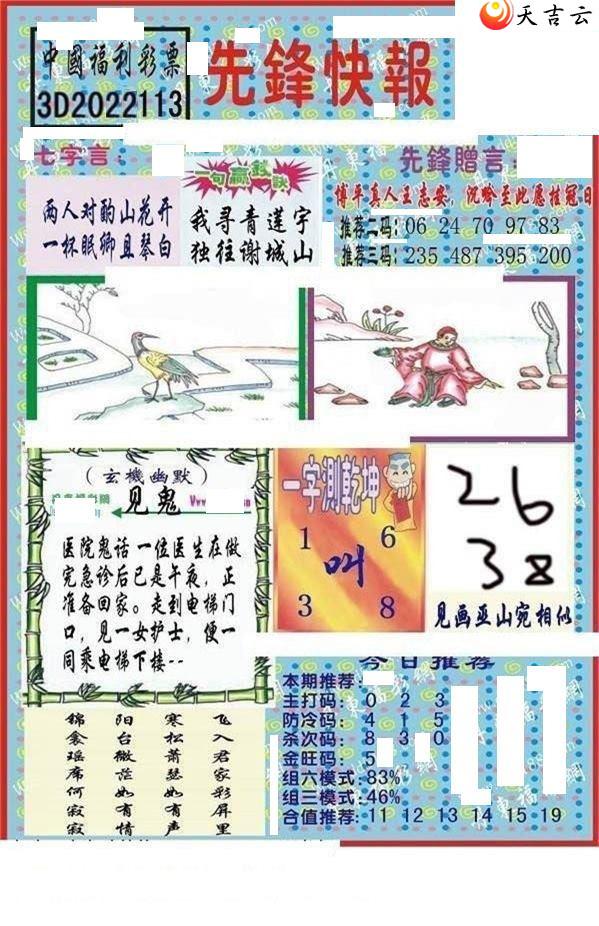 天吉云
中國福利彩票
3D2022113
先鋒快報
七字言：
两人对酌山花开
一杯眠卿且琴白
一句赢錢訣
我寻青莲宇
独往谢城山
先鋒贈言：
博平真人王志安，沉吟至此愿挂冠日
推荐二码：06 24 70 97 83
推荐三码：235 487 395 200
（玄機幽默）
见鬼
医院鬼话 一位医生在做
完急诊后已是午夜，正
准备回家。走到电梯门
口，见一女护士，便一
同乘电梯下楼--
一字測乾坤
1 6
叫
3 8
26
38
见画亚山宛相似
锦衾瑶席何寂寂
阳台微茫如有情
寒松萧瑟如有声
飞入君家彩屏里
今日推荐
本期推荐：
主打码：0 2 3
防冷码：4 1 5
杀次码：8 3 0
金旺码：5
组六模式：83%
组三模式：46%
合值推荐：11 12 13 14 15 19